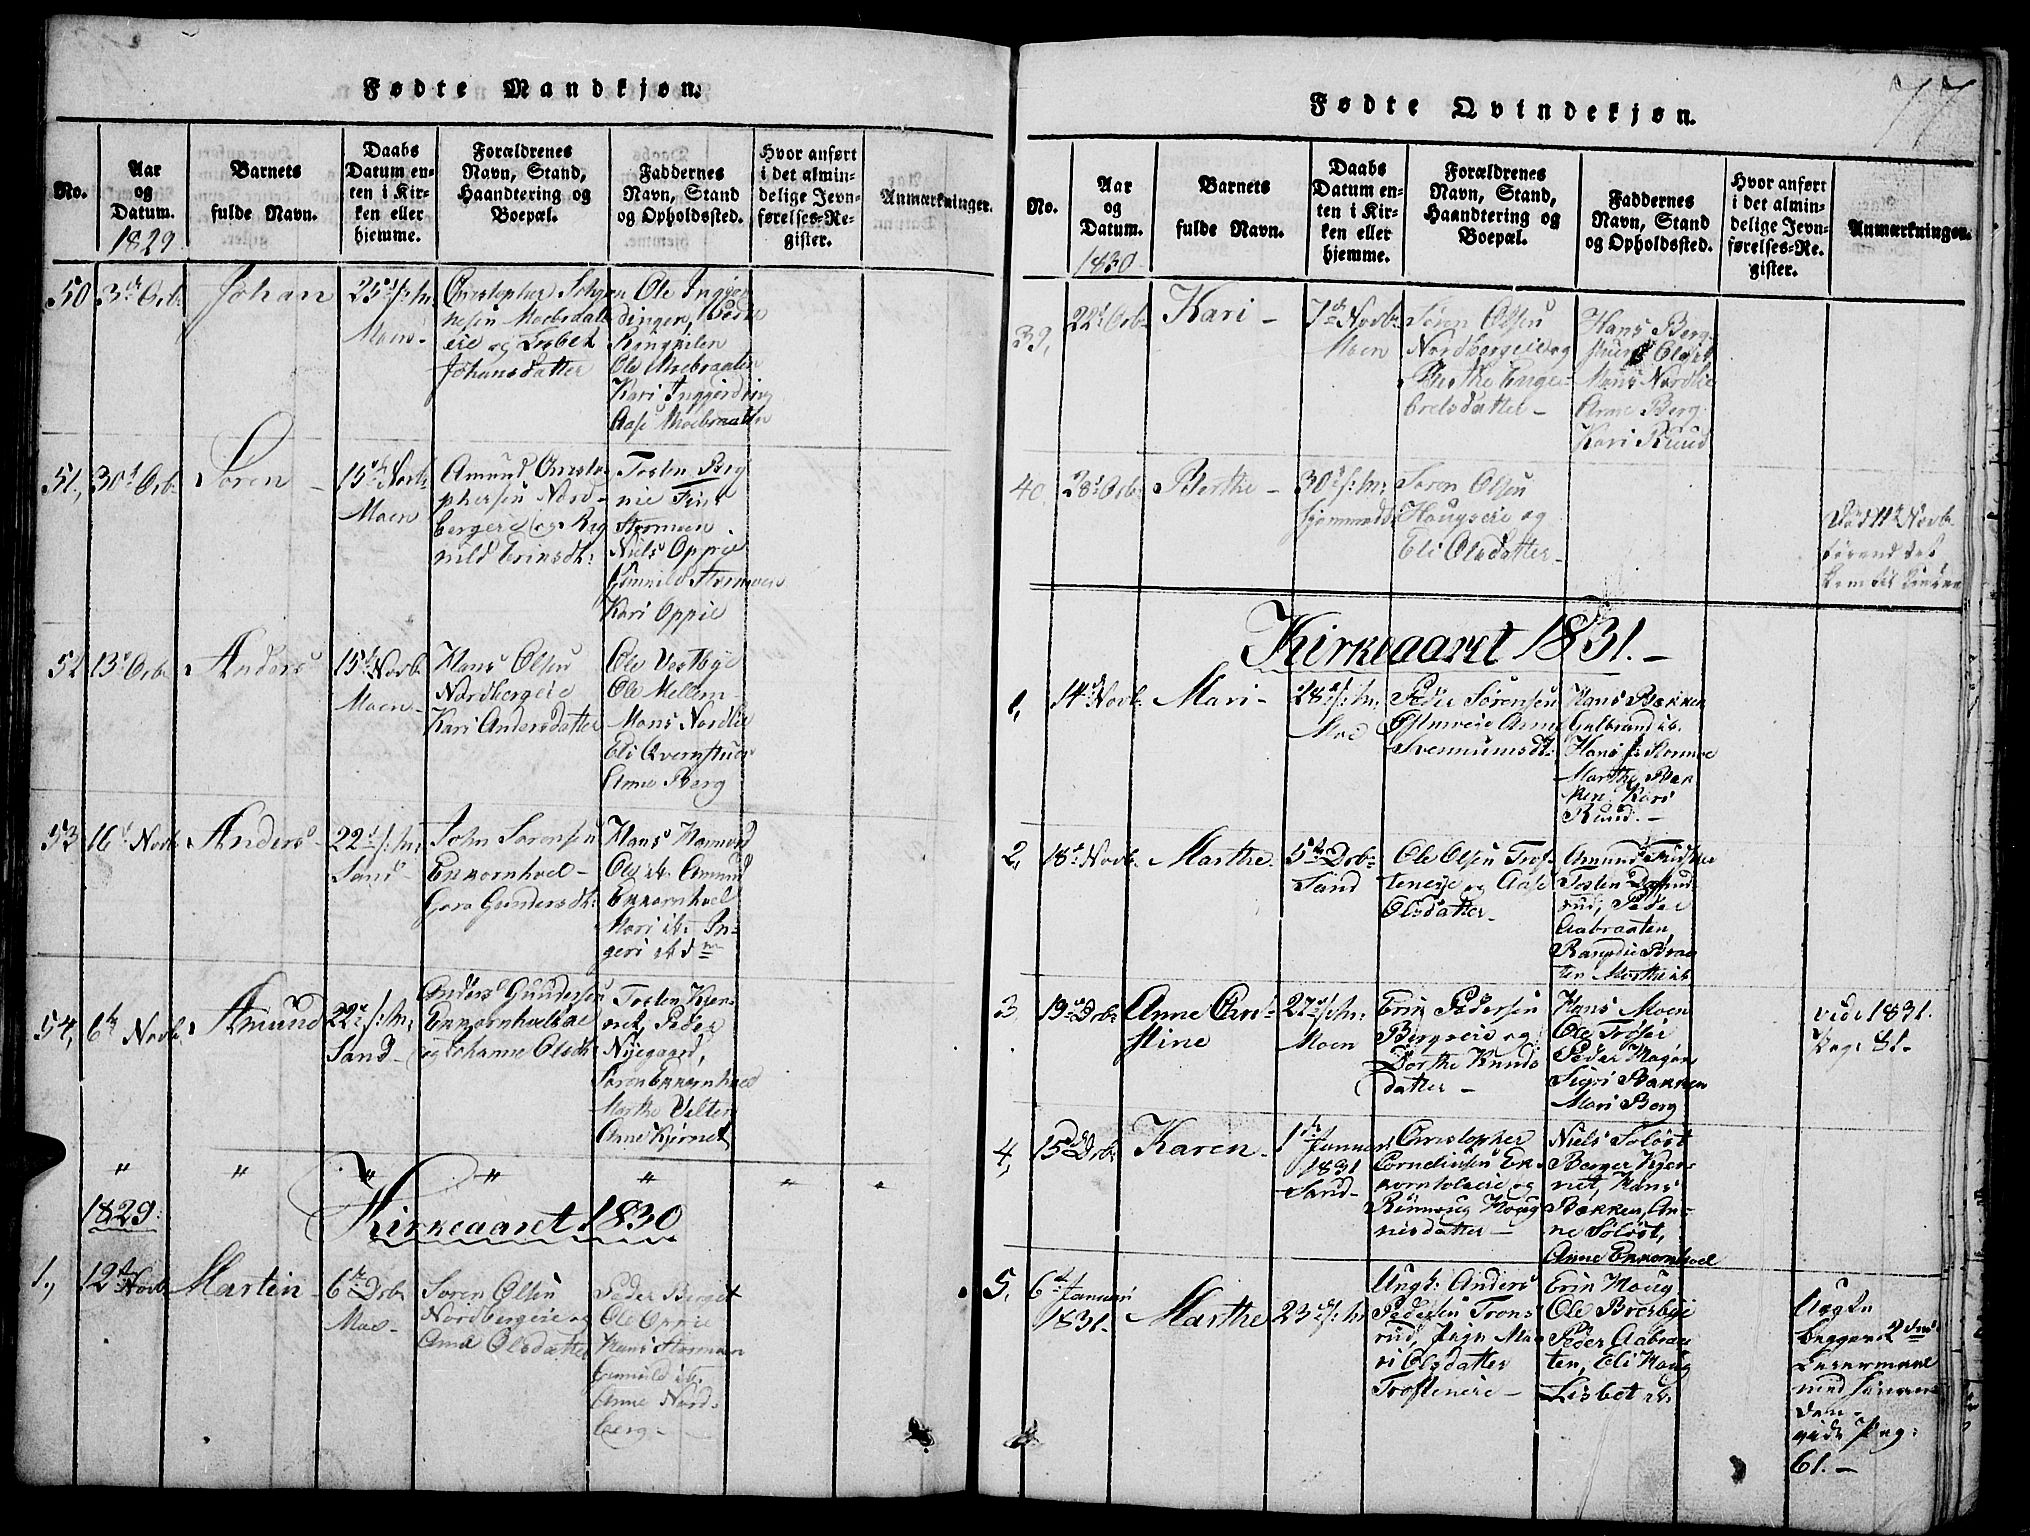 Fødte Mandkjøn.
No.
Aar
og
Datum.
1829
Barnets
fulde Navn.
Daabs
Datum en-
ten i Kir-
ken eller
hjemme.
Forældrenes
Navn, Stand,
Haandtering og
Boepæl.
Faddernes
Navn, Stand
og Opholdssted.
Hvor anført
i det almin-
delige Jevn-
førelses-Re-
gister.
Anmærkninger.
50
3d Octb:
Johan
25d s: m:
Moen
Christopher
nesen Moebraate
eie og Lisbet
Johansdatter
Ole Ingjer
dingen, Peder
Kongsilen
Ole Moebraaten
Kari Ingjerding
Aase Moebraaten
51,
30d Octb:
Søren
15d Novb:
Moen
Amund Christo-
phersen Nord-
bergeie og Rag
nild Erixsdt:
Tosten Berg
nie
Stormoen
Niels Oppie
Gunnild Stormoen
Kari Oppie
52
13d Octb:
Anders
15d Novb:
Moen
Hans Olsen
Nordbergeie
Kari Andersdatter
Ole Vestbye
Ole Mellem
Mons Nordlie
Eli Qvernstuen
Anne Berg
53
16d Novb:
Anders
22d s: m:
Sand
John Sørensen
Exxornhoel
Goro Gundersdt:
Hans Hammer
Ole it: Amund
Exxornhoel
Mari it: In-
geri it dm
54,
6te Novb:
Amund
22d s: m:
Sand
Anders Gundersen
Exxornholeie
og Johanne Olsdt:
Tosten Kjer-
net, Peder
Nyegaged,
Søren Exxornhoel
Marthe Velten
Anne Kjernet
" " " " " " "
1829
Kirkeaaret 1830
1,
12te Novb:
Martin
6te Decb:
Moe
Søren Olsen
Nordbergeie og
Anne Olsdatter
Peder Berget
Ole Oppie
Hans Stormoen
Gunnild it:
Anne Nord-
berg
77
Fødte Qvindekjøn.
No.
Aar
og
Datum.
1830
Barnets
fulde Navn.
Daabs
Datum en-
ten i Kir-
ken eller
hjemme.
Forældrenes
Navn, Stand,
Haandtering og
Boepæl.
Faddernes
Navn, Stand
og Opholdssted.
Hvor anført
i det almin-
delige Jevn-
førelses-Re-
gister.
Anmærkninger.
39,
22d Octb:
Kari
7de Novb:
Moen
Søren Olsen
Nordbergeie og
Berthe Enge-
bretsdatter
Hans Berg-
stuen Ole it
Mons Nordlie
Anne Berg
Kari Ruud
40
28d Octb:
Berthe
30d s: m:
hjemmedøbt
Søren Olsen
Haugseie og
Eli Olsdatter
Død 11te Novb:
førend det
kom til Kirken
Kirkeaaret 1831.
1,
14d Novb:
Mari
28d s: m:
Moe
Peder Sørensen
Anne
Svennumsdt:
Hans Bakken
Gulbrand it.
Hans Stormoe
Marthe Bak
ken, Kari
Ruud.
2,
18d Novb:
Marthe
5te Decb:
Sand
Ole Olsen Tros-
teneie og Aase
Olsdatter
Amund
Tosten
rud, Peder
Aabraaten,
Braa
ten Marthe it
3
19d Decb:
Anne Chri-
stine
27d s: m:
Moen
Erix Pedersen
Bergseie og
Dorthe Knuds
datter
Hans Moen
Ole
Peder Hagen
Sigri Bakken
Mari Berg
vide 1831
Pag: 81.
4,
15de Decb:
Karen
1ste Januar
1831
Sand
Christopher
Corneliusen Ex-
xornholeie og
Rønnaug Haag
nesdatter
Niels Soløst
Berger Kjer-
net, Hans
Bakken, An-
ne Soløst,
Anne Exxornhoel
5,
6te Januari
1831
Marthe
23d s: m:
Ungk: Anders
Pedersen Trons
rud, Pign Ma
ri Olsdatter
Trosteneie
Erix Haug
Ole Bresbye
Peder Aabraa
ten, Eli Haug
Lisbet it
Uægte
begges 2det
Leiermaal
med hinan-
den
vide Pag:
61.